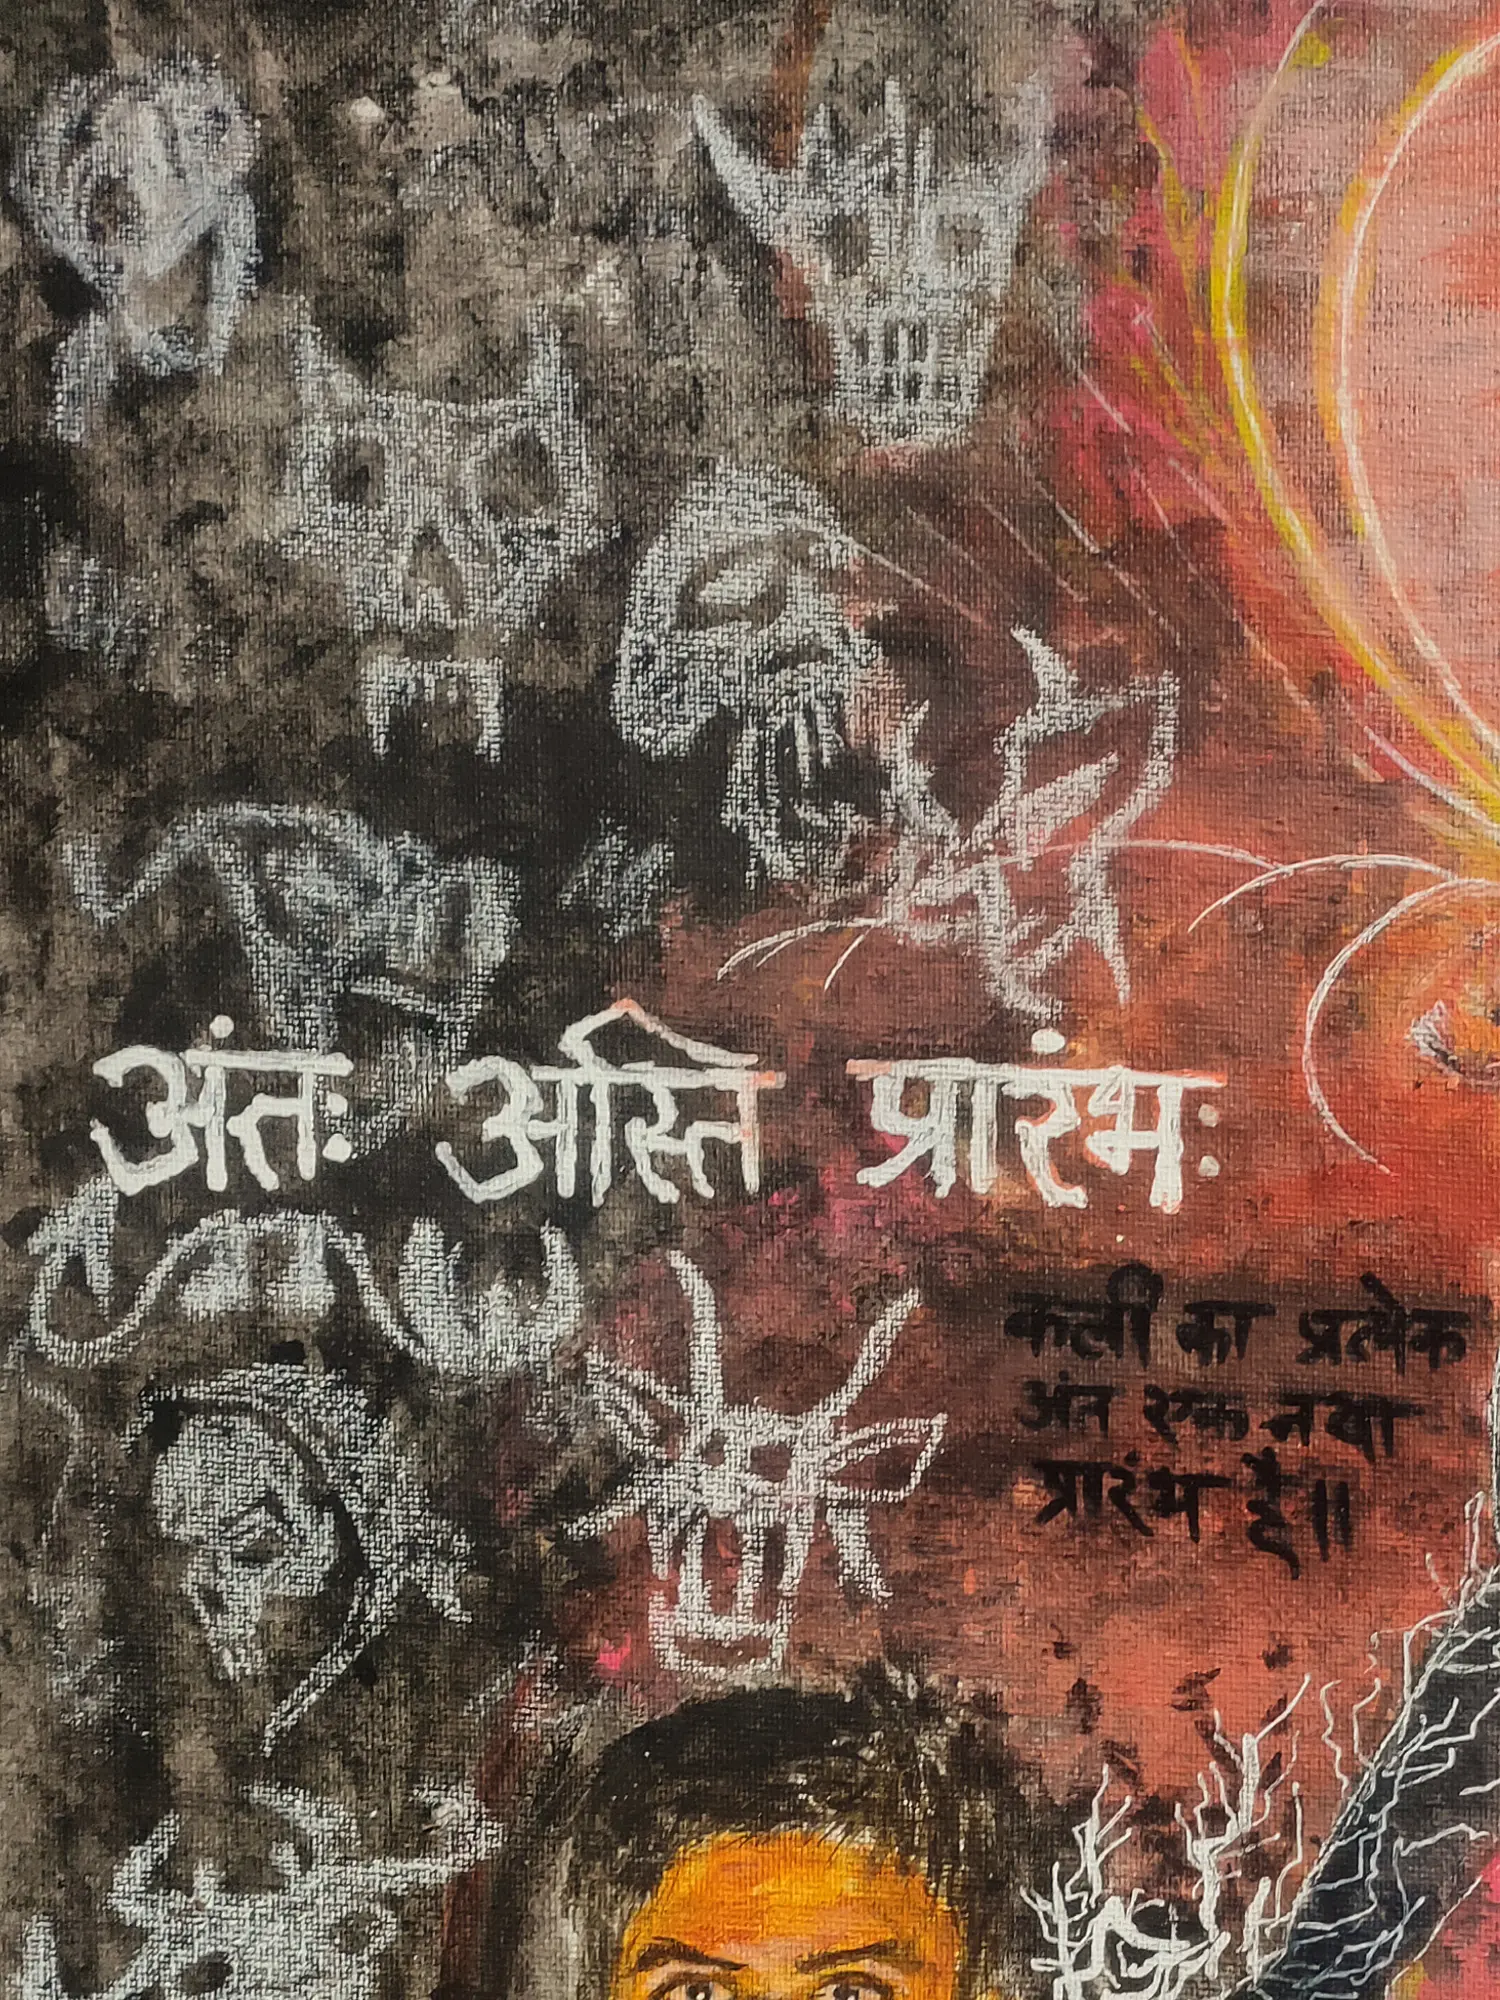 अंतः अस्ति प्रारंभः
कली का प्रत्येक
अंत एक नया
प्रारंभ है॥